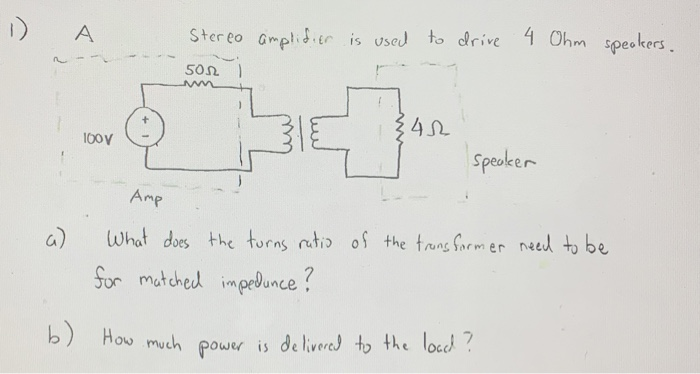 1) A Stereo amplifier is used to drive 4 Ohm speakers.
50Ω
+
-
100V
4Ω
speaker
Amp
a) What does the turns ratio of the transformer need to be
for matched impedance?
b) How much power is delivered to the load?